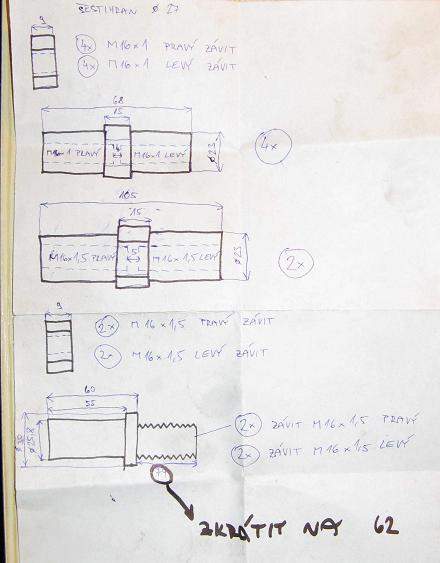 ŠESTIHRAN ø 27
9
4x M16x1 PRAVÝ ZÁVIT
4x M16x1 LEVÝ ZÁVIT
68
15
M16x1 PRAVÝ
5
M16x1 LEVÝ
ø23
4x
105
15
M16x1,5 PRAVÝ
5
M16x1,5 LEVÝ
ø23
2x
9
2x M16x1,5 PRAVÝ ZÁVIT
2x M16x1,5 LEVÝ ZÁVIT
60
55
ø 30
2x ZÁVIT M16x1,5 PRAVÝ
2x ZÁVIT M16x1,5 LEVÝ
ZKRÁTIT NA 62